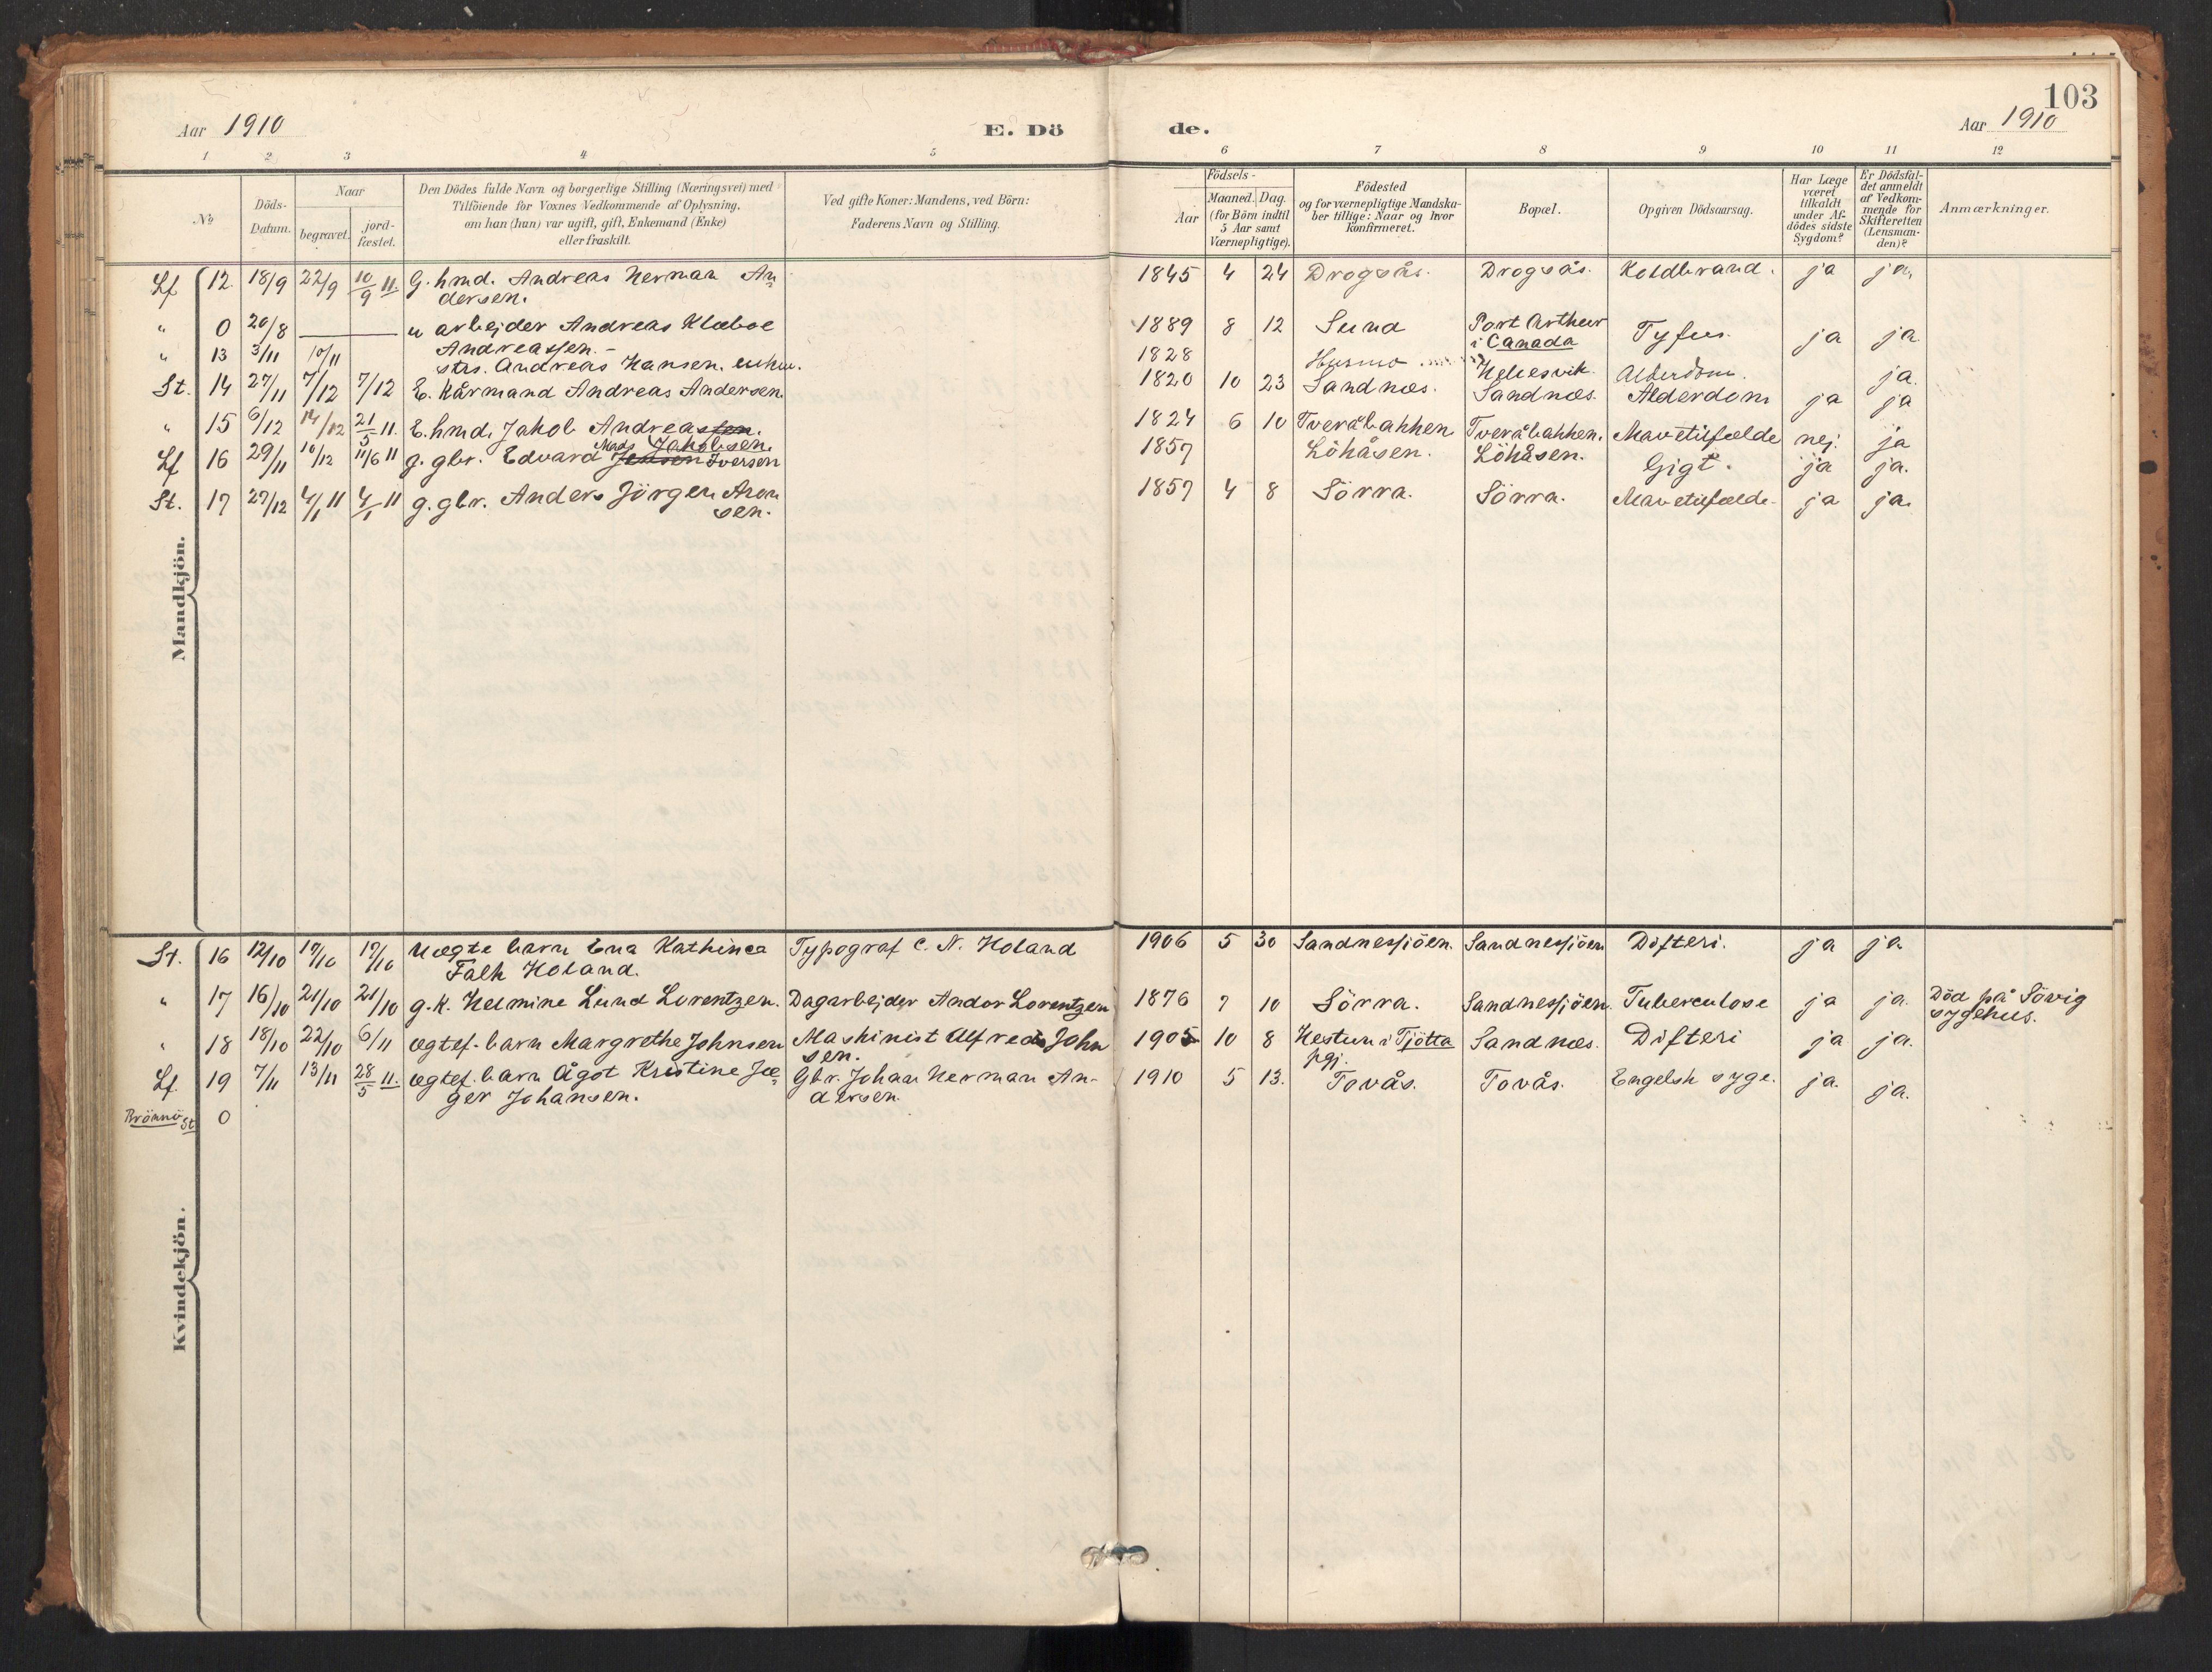 103
Aar 1910 E. Dö de. Aar 1910
1 2 3 4 5 6 7 8 9 10 11 12
№ Döds-Datum. Naar begravet. jord-fæstet. Den Dödes fulde Navn og borgerlige Stilling (Næringsvei) med Tilföiende for Voxnes Vedkommende af Oplysning, om han (hun) var ugift, gift, Enkemand (Enke) eller fraskilt. Ved gifte Koner: Mandens, ved Börn: Faderens Navn og Stilling. Födsels- Aar Maaned. Dag. (for Börn indtil 5 Aar samt Værnepligtige). Födested og for værnepligtige Mandska-ber tillige: Naar og hvor konfirmeret. Bopæl. Opgiven Dödsaarsag. Har Læge været tilkaldt under Af-dödes sidste Sygdom? Er Dödsfal-det anmeldt af Vedkom-mende for Skifteretten (Lensman-den)? Anmærkninger.
Mandkjön.
Lf 12. 18/9 22/9 10/9 11. G. hmd. Andreas Herman An- 1845 4 24 Drogsås. Drogsås. Koldbrand. ja ja.
dersen.
" 0 20/8 — u arbejder Andreas Klæboe 1889 8 12 Sund Port Arthur Tyfus. ja ja.
Andreassen. - i Canada
" 13 3/11 10/11 strs. Andreas Hansen. enkm. 1828 Husmo Helesvik Alderdom. ja.
St. 14 27/11 7/12 7/12 E. Kårmand Andreas Andersen. 1820 10 23 Sandnes. Sandnes. Alderdom ja ja
" 15 6/12 14/12 21/5 11. E. hmd. Jakob Andreassen. 1824 6 10 Tveråbakken Tveråbakken. Mavetilfælde nej. ja
Mads Jakobsen.
Lf 16 29/11 10/12 11/6 11 g. gbr. Edvard Jensen Iversen 1857 Löhåsen. Löhåsen. Gigt. ja ja.
St. 17 27/12 4/1 11 4/1 11 g. gbr. Anders Jörgen Aron 1857 4 8 Sörra. Sörra. Mavetilfælde. ja ja.
sen.
Kvindekjön.
St. 16 12/10 17/10 17/10 Uægte barn Ena Kathinea Typograf C. N. Holand 1906 5 30 Sandnessjöen. Sandnessjöen Difteri. ja ja.
Falk Holand.
" 17 16/10 21/10 21/10 g. k. Helmine Lund Lorentzen. Dagarbejder Andor Lorentzen 1876 7 10 Sörra. Sandnessjöen. Tuberculose ja ja. Död på Sövig
sygehus.
" 18 18/10 22/10 6/11 ægtef. barn Margrethe Johnsen Maskinist Alfred John 1905 10 8 Hestun i Tjötta Sandnes. Difteri ja ja.
sen. pgj.
Lf. 19 7/11 13/11 28/5 11. ægtef. barn Ågot Kristine Jæ- Gbr. Johan Herman An- 1910 5 13. Tovås. Tovås. Engelsk syge. ja. ja.
ger Johansen. dersen.
Brönnö St 0